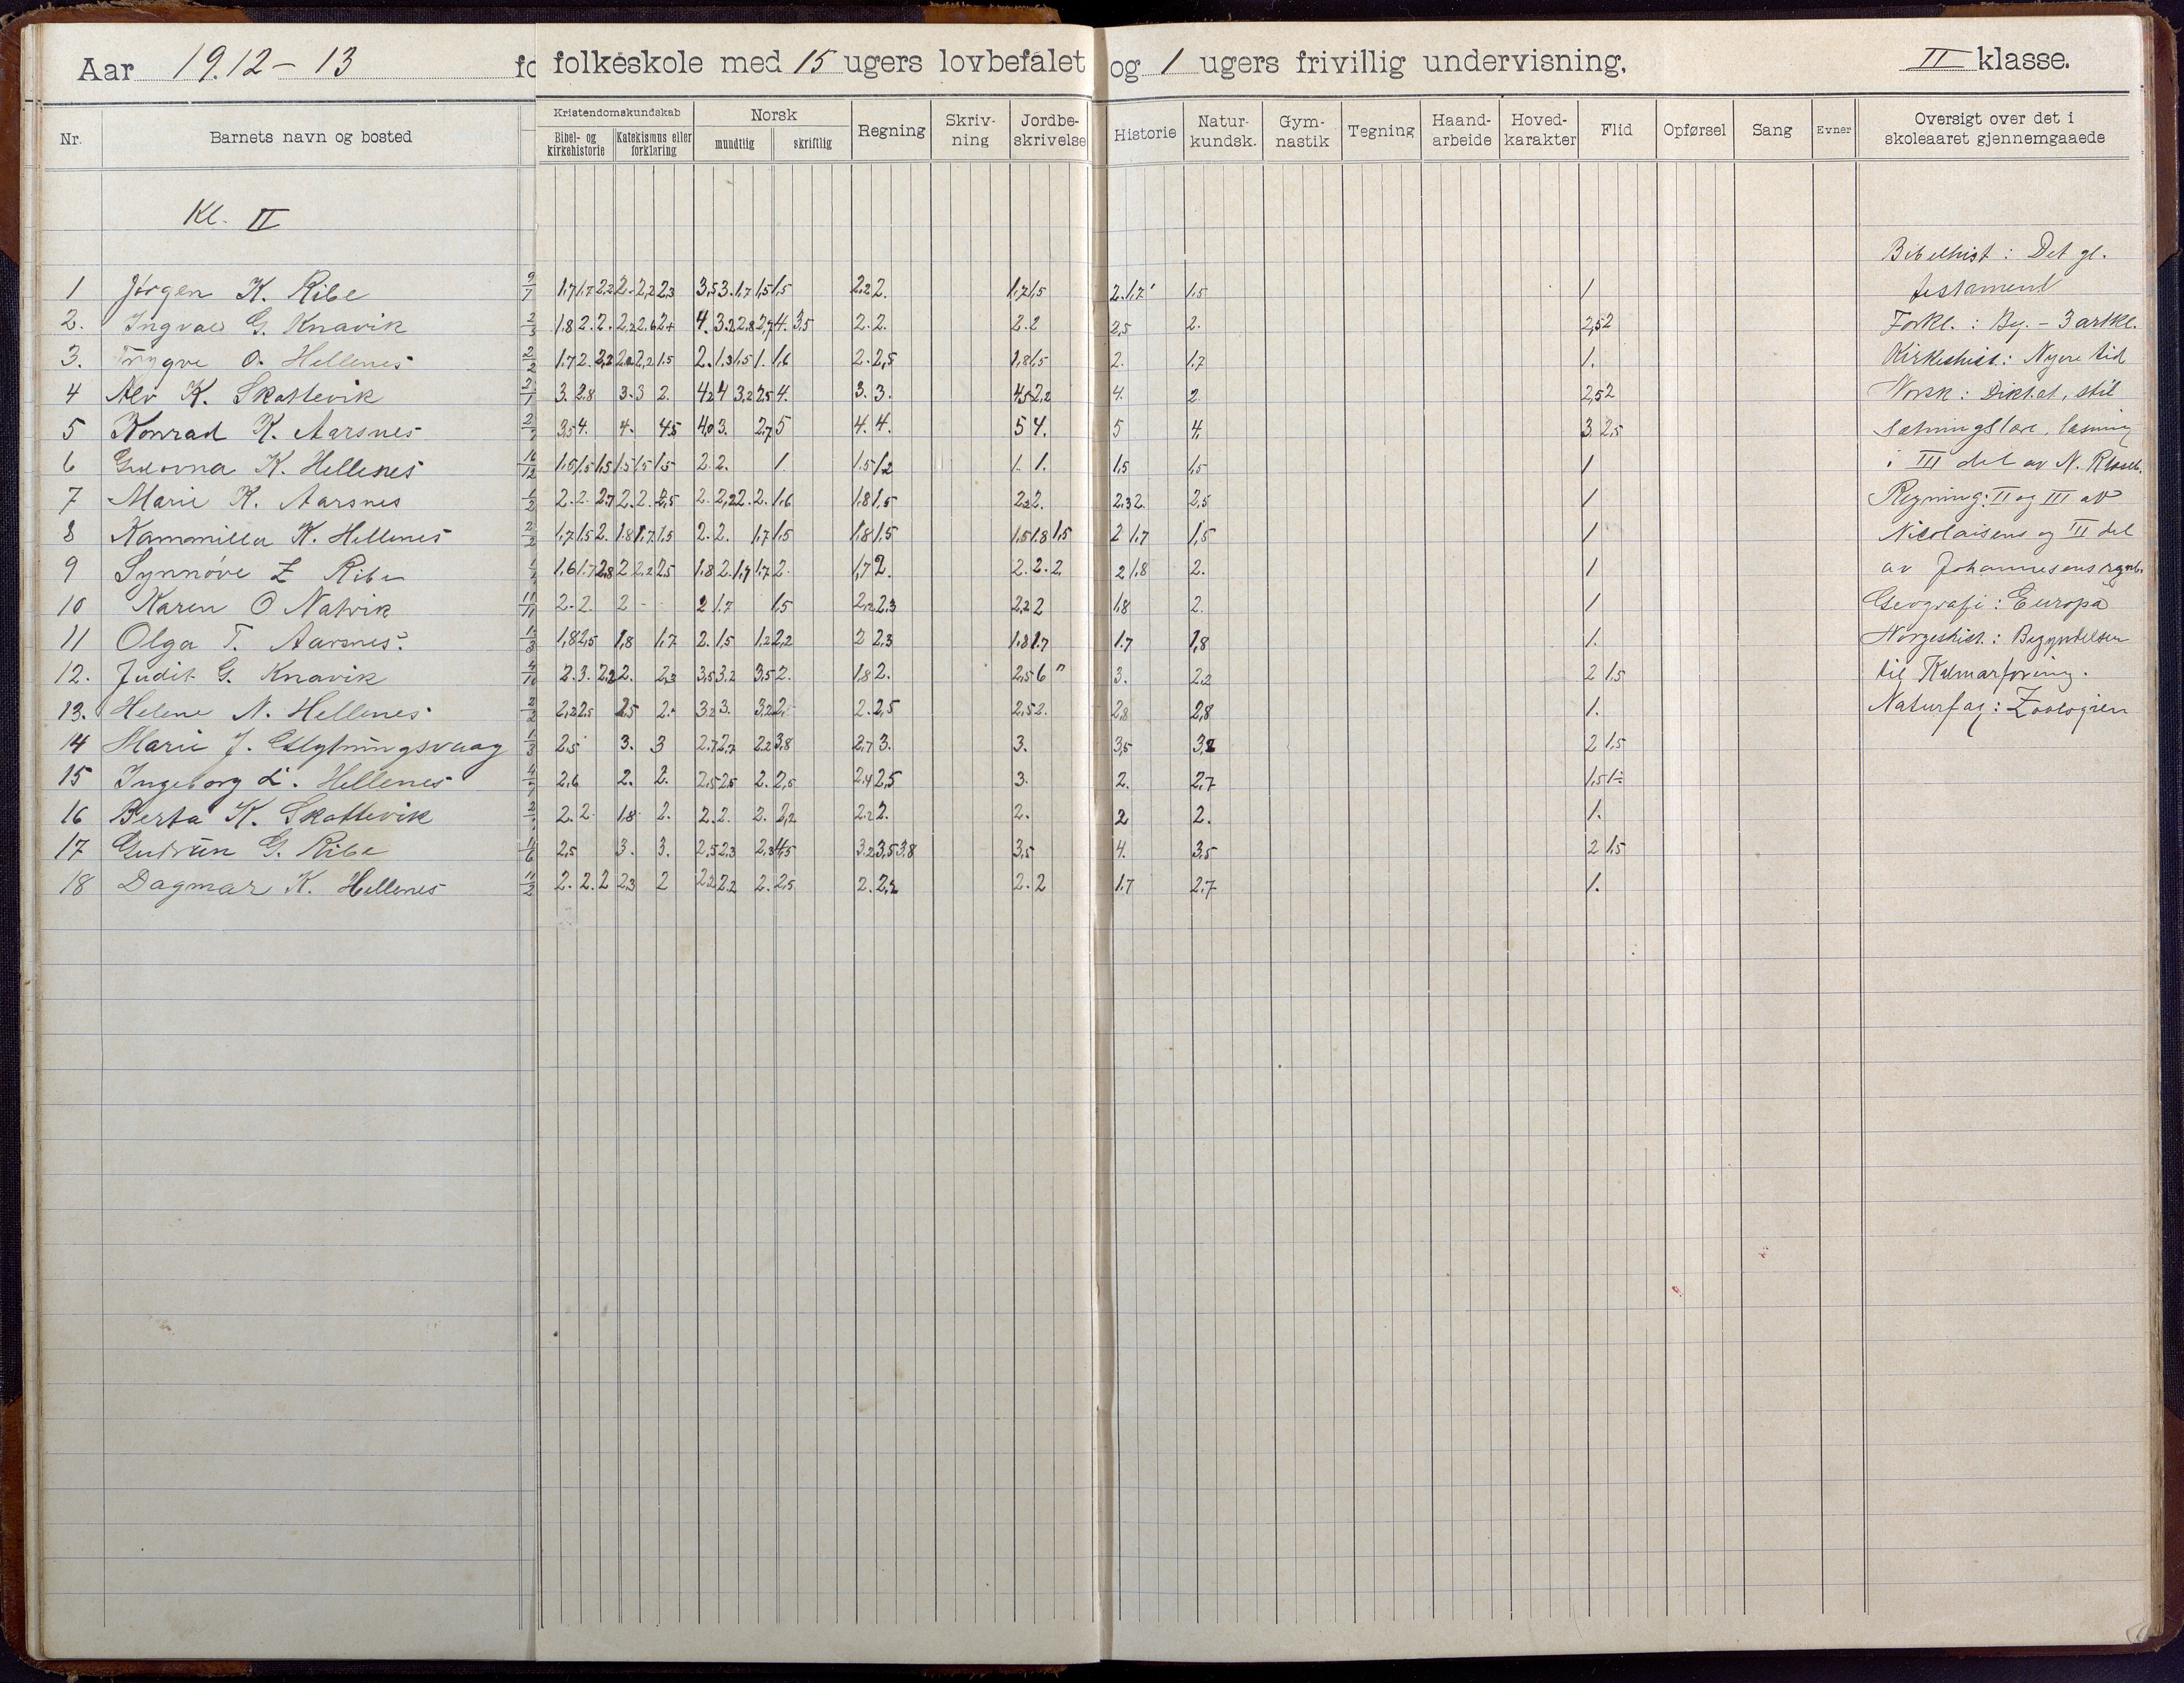 Aar 1912-13 fo folkeskole med 15 ugers lovbefalet og 1 ugers frivillig undervisning, II klasse.
Nr. Barnets navn og bosted Kristendomskundskab Bibel- og kirkehistorie Katekismus eller forklaring Norsk mundtlig skriftlig Regning Skriv-ning Jordbe-skrivelse Historie Natur-kundsk. Gym-nastik Tegning Haand-arbeide Hoved-karakter Flid Opførsel Sang Evner Oversigt over det i skoleaaret gjennemgaaede
Kl. II
Bibelhist: Det gl.
1 Jørgen K. Ribe 9/7 1,7 1,7 2,2 2. 2,2 2,3 3,5 3. 1,7 1,5 1,5 2,2 2. 1,7 1,5 2. 1,7 1,5 1 testament
2. Ingvald G. Knavik 2/3 1,8 2. 2. 2,2 2,6 2+ 4. 3,2 2,8 2,7 4. 3,5 2. 2. 2. 2 2,5 2. 2,5 2 Forkl.: Beg. - 3 artkl.
3. Trygve O. Hellenes 2/2 1,7 2. 2,2 2,2 2,2 1,5 2. 1,3 1,5 1. 1,6 2. 2,5 1,8 1,5 2. 1,7 1. Kirkehist.: Nyere tid
4 Alv K. Skattevik 2/1 3. 2,8 3. 3 2. 4,2 4 3,2 2,5 4. 3. 3. 4,5 2,2 4. 2 2,5 2 Norsk: Diktat, stil
5 Konrad K. Aarsnes 3,5 4. 4. 4,5 4,0 3. 2,7 5 4. 4. 5 4. 5 4. 3. 2,5 sætningslære, læsning
6 K. Hellenes 16/12 1,5 1,5 1,5 1,5 1,5 1,5 2. 2. 1. 1,5 1,2 1. 1. 1,5 1,5 1 i III del av N. Rolfsen.
7 Marie K. Aarsnes 2. 2. 2,7 2. 2. 2,5 2. 2,2 2. 2. 1,6 1,8 1,5 2,2 2. 2,3 2. 2,5 1 Regning: II og III av
8 Kammilla K. Hellenes 2/2 1,7 1,5 2. 1,8 1,7 1,5 2. 2. 1,7 1,5 1,8 1,5 1,5 1,8 1,5 2 1,7 1,5 1 Nicolaisens og III del
9 Synnøve Z Ribe 1,6 1,7 2,8 2 2,2 2,5 1,8 2. 1,7 1,7 2. 1,7 2. 2. 2. 2. 2 1,8 2. 1 av Johannesens
10 Karen O Natvik 11/11 2. 2. 2 - 2 1,7 1,5 2,2 2,3 2,2 2 1,8 2. 1 Geografi: Europa
11 Olga T. Aarsnes. 1/3 1,8 2,5 1,8 1,7 2. 1,5 1,2 2,2 2 2,3 1,8 1,7 1,7 1,8 1. Norgeshist.: Begyndelsen
12. Judit G. Knavik 4/10 2. 3. 2,2 2. 2,3 3,5 3,2 3,5 2. 1,8 2. 2,5 6 " 3. 2,2 2 1,5 til Kalmarforening.
13. Helene N. Hellenes 2/2 2,2 2,5 2,5 2. 3,2 3. 3,2 2. 2. 2,5 2,5 2. 2,8 2,8 1. Naturfag: Zoologien
14 Marie J. 1/3 2,5 3. 3 2,7 2,7 2,2 3,8 2,7 3. 3. 3,5 3,2 2 1,5
15 Ingeborg L. Hellenes 2,6 2. 2. 2,5 2,5 2. 2,5 2,4 2,5 3. 2. 2,7 1,5 1÷
16 Berta K. Skattevik 2. 2. 1,8 2. 2. 2. 2. 2,2 2,2 2. 2. 2 2. 1.
17 Gudrun G. Ribe 2,5 3. 3. 2,5 2,3 2,3 4,5 3,2 3,5 3,8 3,5 4. 3,5 2 1,5
18 Dagmar K. Hellenes 11/2 2. 2. 2 2,3 2 2,2 2,2 2. 2,5 2. 2,2 2. 2 1,7 2,7 1.